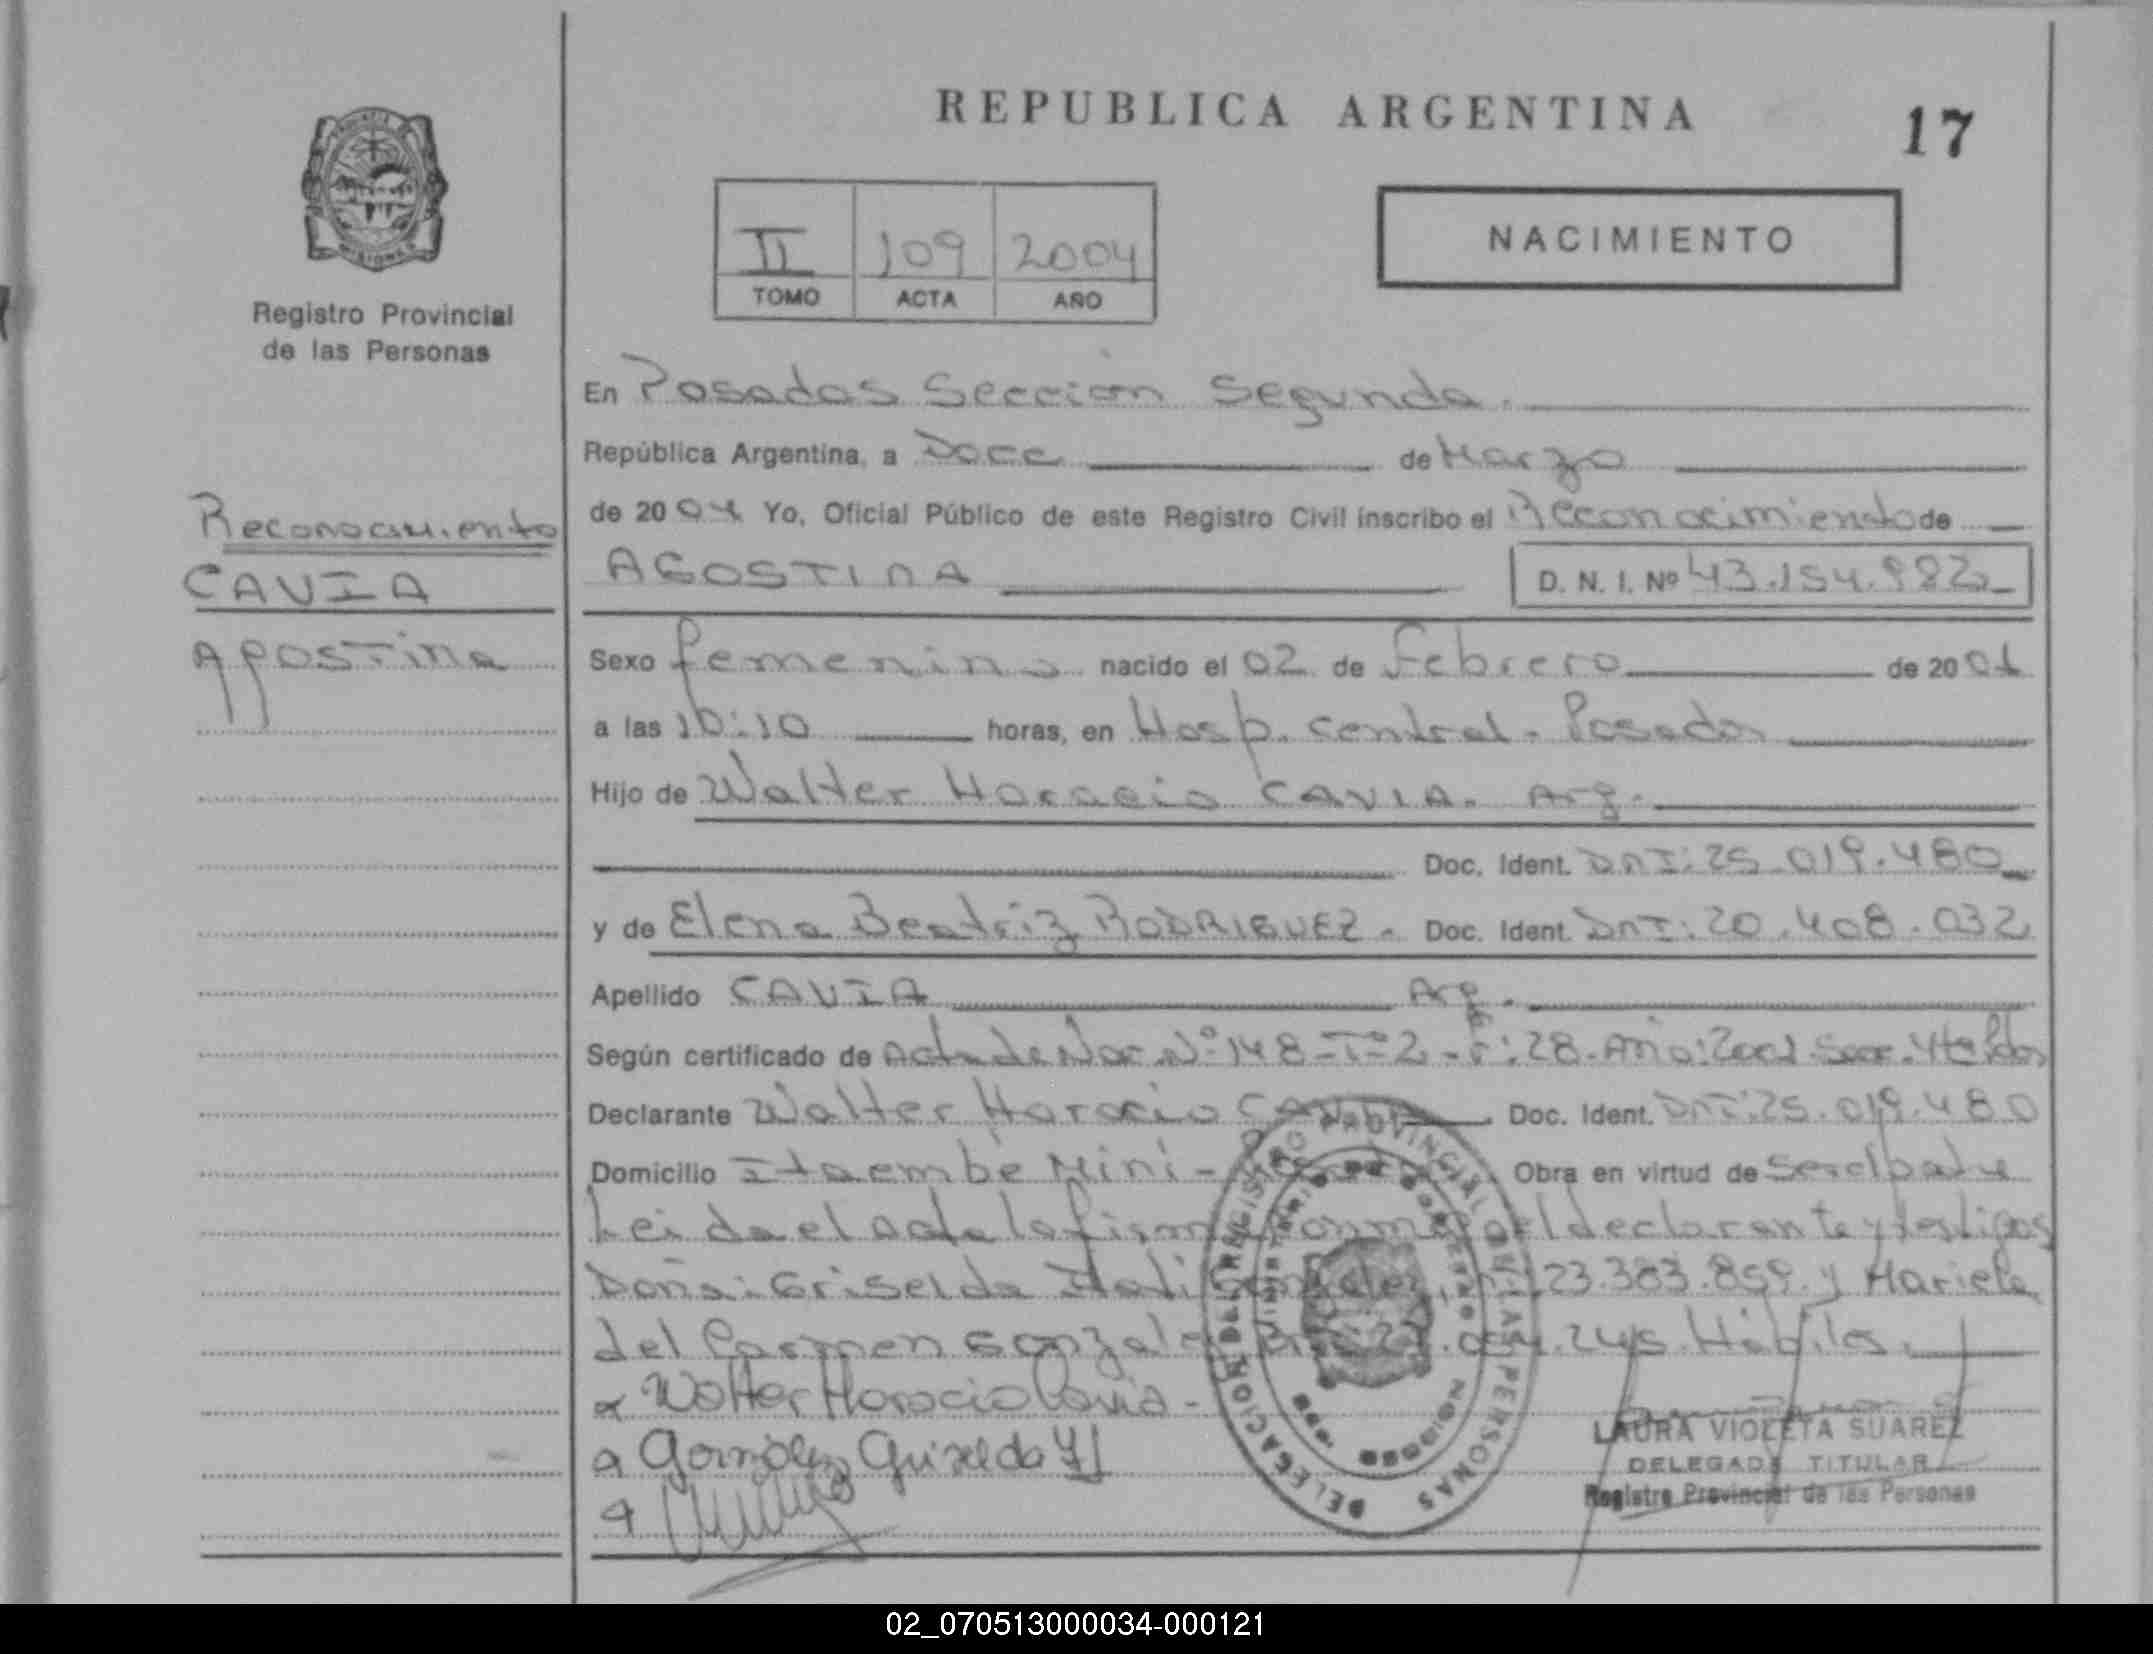 REPUBLICA ARGENTINA
17
II 109 2004
TOMO ACTA AÑO
NACIMIENTO
Registro Provincial
de las Personas
Reconocimiento
CAVIA
Agostina
En Posadas Sección Segunda.
República Argentina, a Doce de Marzo
de 2004 Yo, Oficial Público de este Registro Civil inscribo el Reconocimiento de
AGOSTINA D. N. I. Nº 43.154.982
Sexo femenino nacido el 02 de Febrero de 2001
a las 10:10 horas, en Hosp. Central - Posadas
Hijo de Walter Horacio CAVIA. Arg.
Doc. Ident. DNI: 25.019.480
y de Elena Beatriz RODRIGUEZ. Doc. Ident. DNI: 20.408.032
Apellido CAVIA Arg.
Según certificado de Acta de Nac. Nº 148-Tº2-Fº:28-Año:2001
Declarante Walter Horacio CAVIA Doc. Ident. DNI: 25.019.480
Domicilio Itaembé Miní - Obra en virtud de ser el padre
Leida el acta la firman el declarante y testigos
Doña: Griselda 23.383.859 y Mariela
del Carmen Gonzalez Hábiles.
Walter Horacio Cavia -
González Griselda
LAURA VIOLETA SUAREZ
DELEGADA TITULAR
Registro Provincial de las Personas
DELEGACION DEL REGISTRO PROVINCIAL DE LAS PERSONAS
02_070513000034-000121